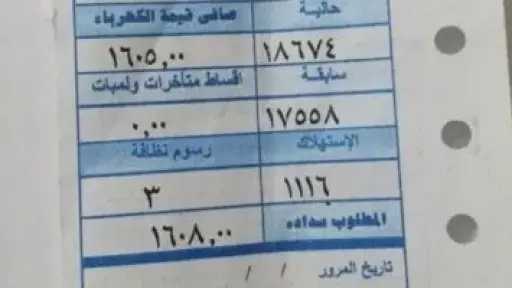 حالية صافى قيمة الكهرباء
١٨٦٧٤ ١٦٠٥,٠٠
سابقة أقساط متأخرات ولمبات
١٧٥٥٨ ٠,٠٠
الإستهلاك رسوم نظافة
١١١٦ ٣
المطلوب سداده ١٦٠٨,٠٠
تاريخ المرور / /